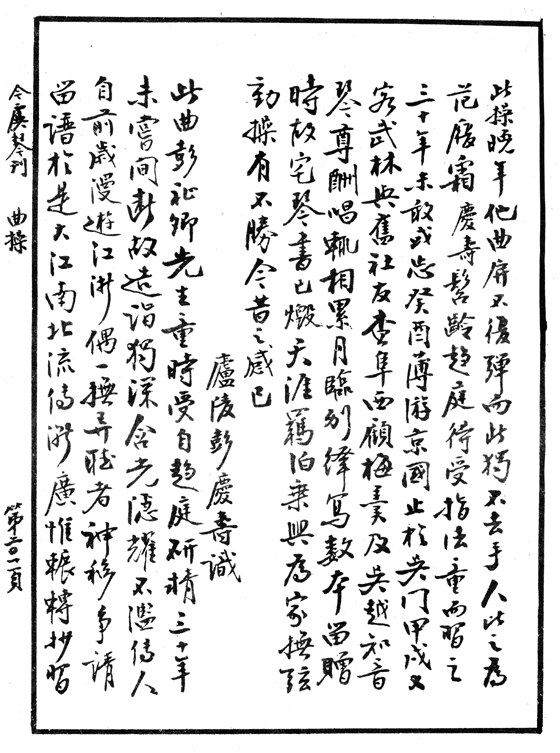 此操晚年他曲屏不復彈而此獨不去手人比之為
范履霜慶壽髫齡趨庭得受指法童而習之
三十年未敢或忘癸酉薄游京國止於吳門甲戌又
客武林與舊社友查阜西顧梅羹及吳越知音
琴尊酬唱輒相累月臨別繹寫數本留贈
時故宅琴書已燬天涯羈泊乘興為家撫弦
動操有不勝今昔之感已
廬陵彭慶壽識
此曲彭祉卿先生童時受自趨庭研精三十年
未嘗間斷故造詣獨深含光隱耀不濫傳人
自前歲漫遊江浙偶一撫弄聽者神移爭請
留譜於是大江南北流傳漸廣惟輾轉抄習
今虞琴刊 曲操
第二〇一頁